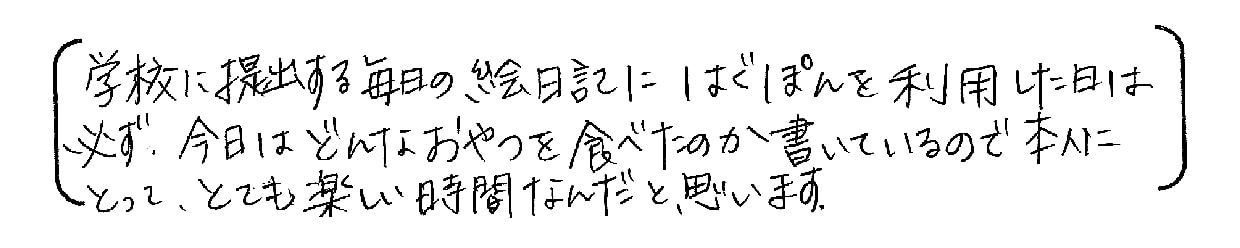 学校に提出する毎日の絵日記に はぐぽんを利用した日は
必ず、今日はどんなおやつを食べたのか書いているので本人に
とって、とても楽しい時間なんだと思います。